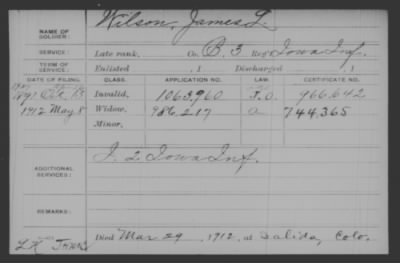 NAME OF SOLDIER: Wilson, James L.
SERVICE: Late rank, Co. B. 3 Reg't Iowa Inf.
TERM OF SERVICE: Enlisted , 1 Discharged , 1
DATE OF FILING. CLASS. APPLICATION NO. LAW. CERTIFICATE NO.
Invalid, 1063,960 966,642
1912 May 8 Widow, 986,217 a 744,365
Minor,
ADDITIONAL SERVICES: I. 2 Iowa Inf.
REMARKS:
Died Mar 29, 1912, at Salida, Colo.